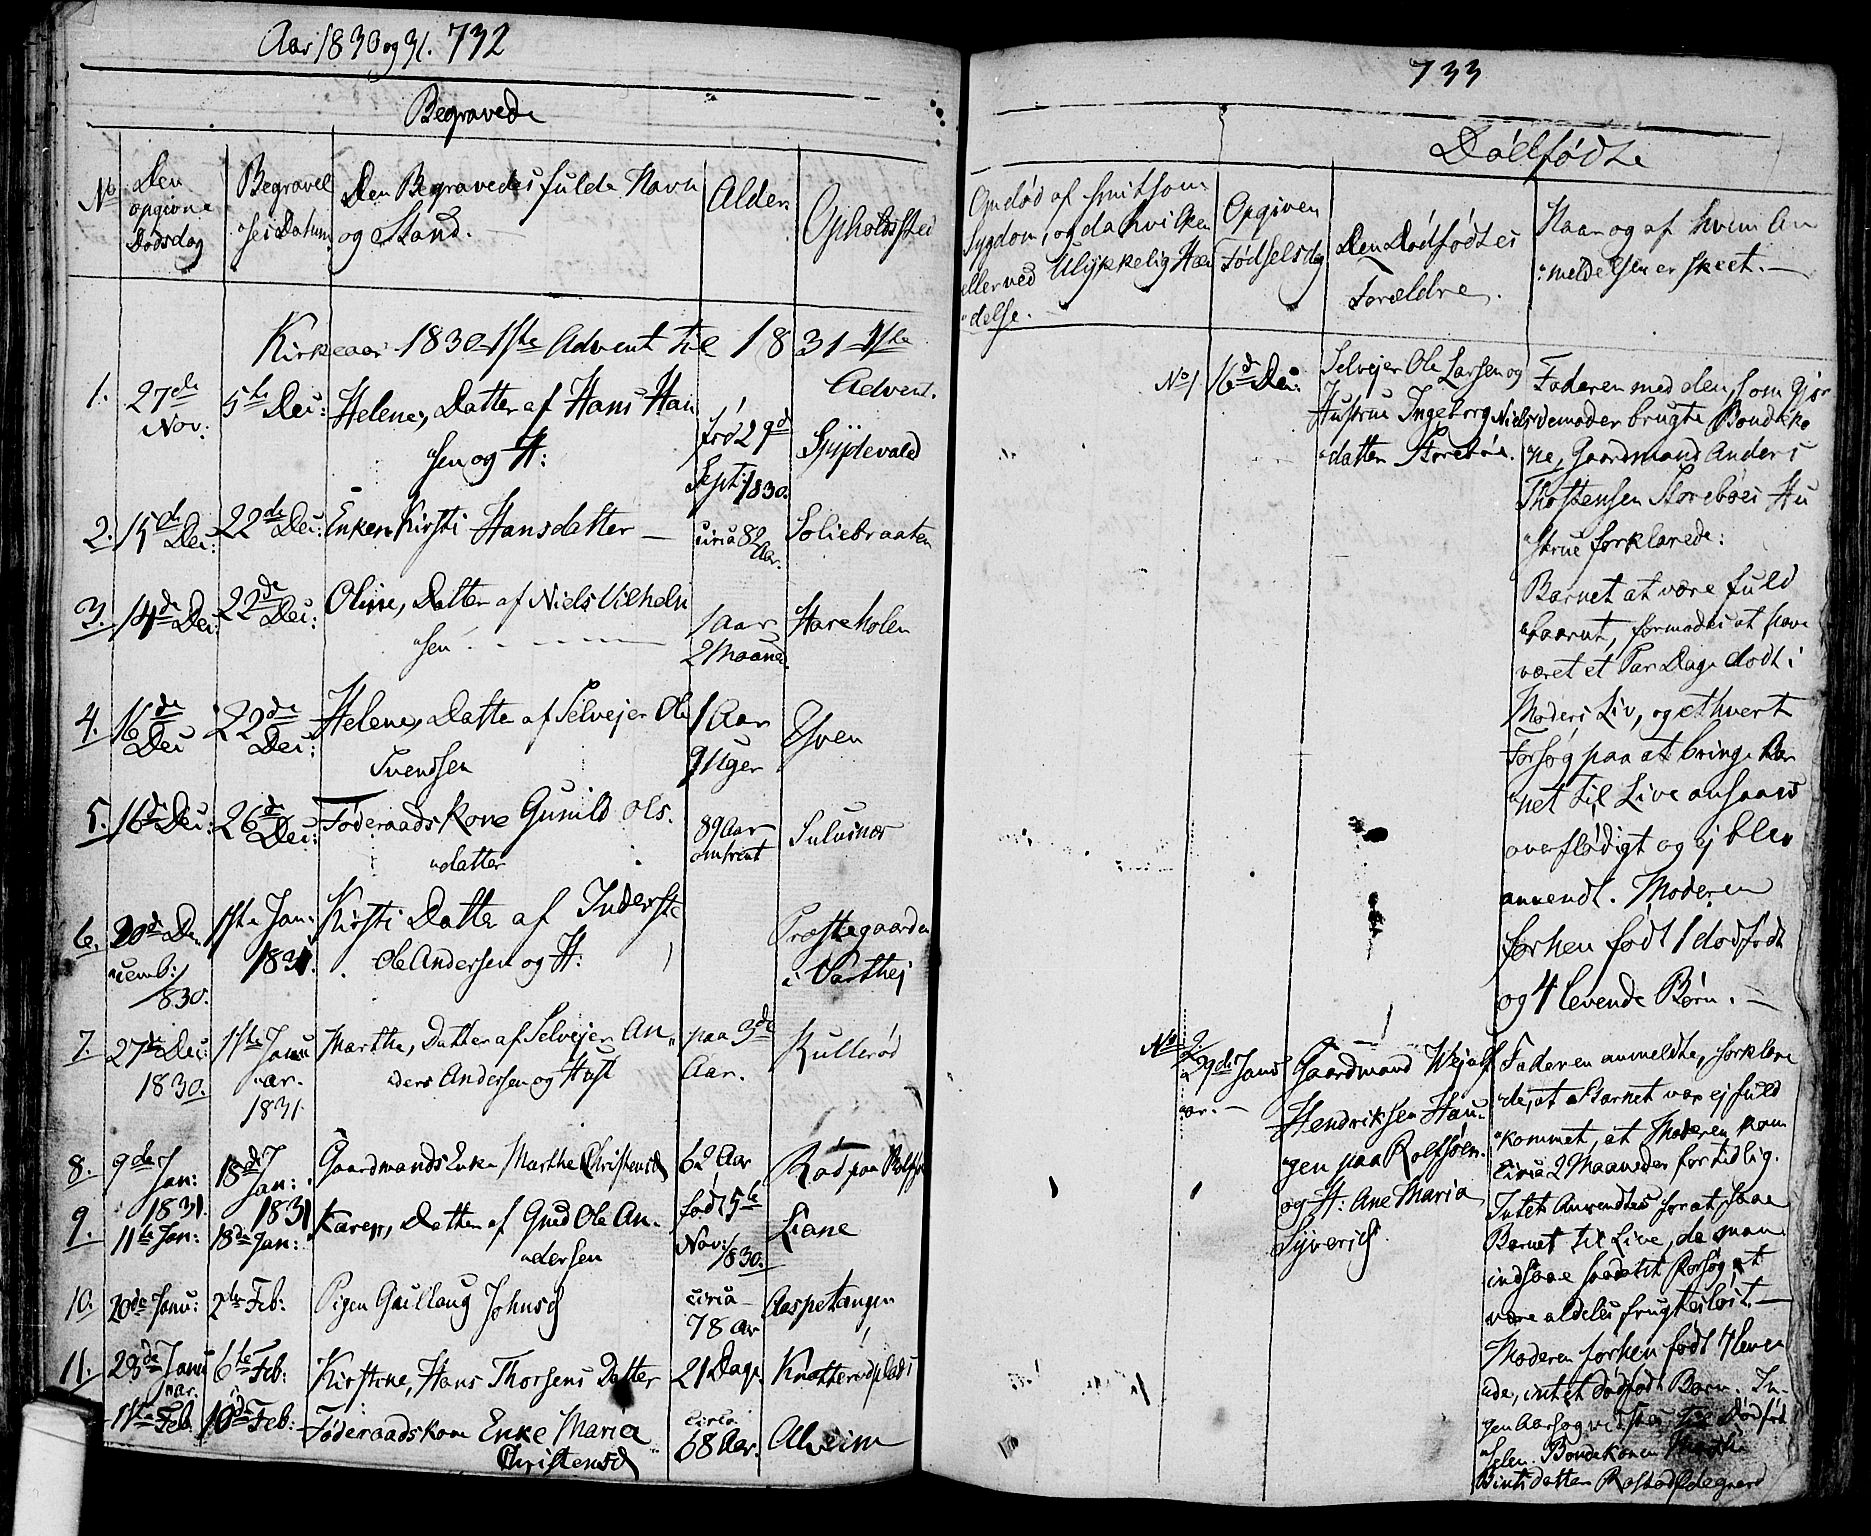 Aar 1830 og 31. 732
Begravede
No
Den opgivne Dødsdag
Begravel "ses Datum
Den Begravedes fulde Navn og Stand.
Alder
Opholdssted
Kirkeaar 1830 1ste Advent til 1831 1ste Advent.
1. 27de Nov: 5te Dec: Helene, Datter af Hans Han "sen og H: født 29d Sept: 1830. Spydevold
2. 15de Dec: 22de Dec: Enken Kirsti Hansdatter circa 82 Aar. Soliebraaten
3. 14de Dec: 22de Dec: Oline, Datter af Niels Vilhelm "sen 1 Aar 2 Maaned. Hareholen
4. 16de Dec 22de Dec: Helene, Datter af Selvejer Ole Svendsen 1 Aar 9 Uger Hven
5. 16de Dec: 26de Dec: Føderaads Kone Gunild Ols. "datter 89 Aar omtrent
6. 20de De "cemb: 1830. 1ste Jan: 1831. Kirsti Datter af Inderste Ole Andersen og H: Præstegaarden i Varthej
7. 27de Dec: 1830. 1ste Janu "ar. 1831. Marthe, Datter af Selvejer An "ders Andersen og Hust paa 3de Aar. Kullerød
8. 9de Jan: 1831. 18de Jan: 1831 Gaardmands Enke Marthe Christensd 62 Aar Rød paa Rolfsø
9. 11te Jan: 18de Jan: Karen, Datter af Gmd Ole An "dersen født 5te Nov: 1830. Liane
10. 20de Janu: 2den Feb: Pigen Gullaug Johnsd circa 78 Ar Aaspetangen
11. 28de Janu "ar. 6te Feb: Kirstine, Hans Thorsens Datter 21 Dage Knatterødplads
1ste Feb 10de Feb: Føderaadskone Enke Maria Christensd circa 68 Aar. Alheim
733
Dødfødte
Om død af smitsom Sygdom, og da hvilken eller ved Ulykkelig Hæn "delse.
Opgiven Fødselsdag
Den Dødfødtes Forældre.
Naar og af hvem An "meldelsen er skeet.
No 1 16de Dec: Selvejer Ole Larsen og Hustrue Ingeborg Niels "datter Storebøe.
Faderen med den, som Gjor
demoder brugte Bondeko
"ne, Gaardmand Anders
Thostensen Storebøes Hu
"strue forklarede:
Barnet at være fuld
"baarent, formodes at have
været et Par Dage dødt i
Moders Liv, og ethvert
Forsøg paa at bringe Bar
"net til Live ansaaes
overflødigt og ej blev
anvendt. Moderen
forhen født 1 dødfødt
og 4 levende Børn.
No 2 29de Janu "ar. Gaardmand Hendriksen Hau "gen paa Rolfsøen og H: Ane Maria Syversd.
Faderen anmeldte, forklare
"de, at Barnet var ej fuld
"kommet, at Moderen kom
circa 2 Maaneder for tidlig.
Intet Anvendtes for at faae
Barnet til Live, da man
indsaae saadant Forsøg at
være aldeles frugtesløst.
Moderen forhen født 4 leven
"de, intet dødfødt Barn. In
"gen Aarsag vidstes til Dødfød
"selen. Bondekonen Marthe